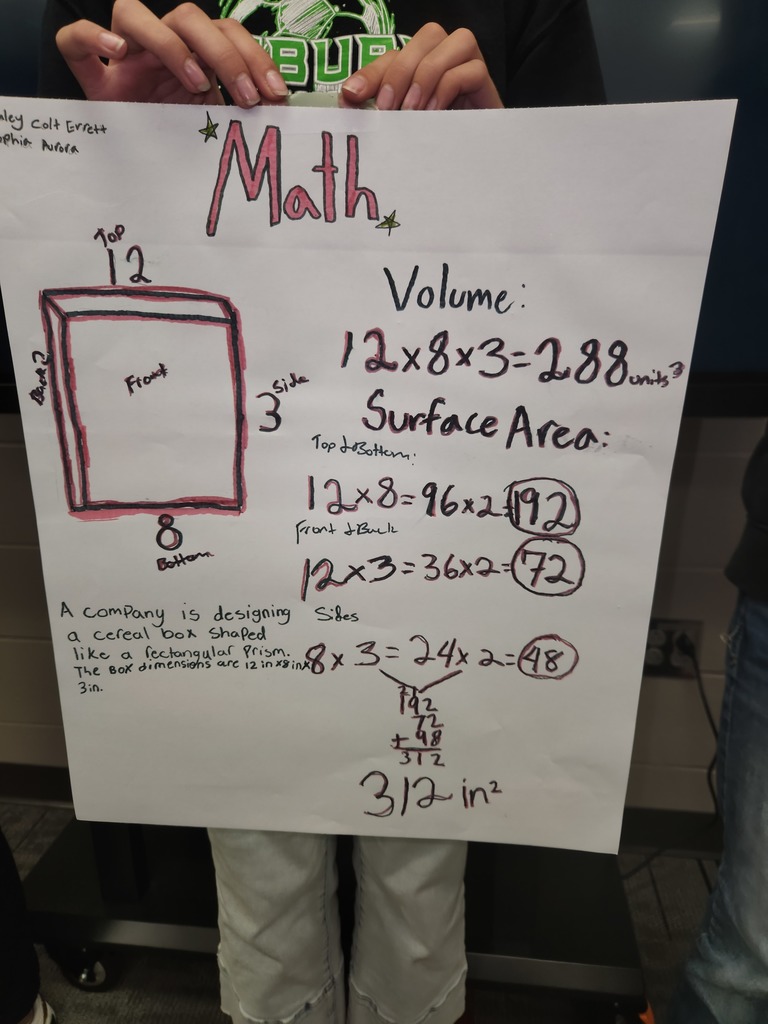 BUR
Colt Errett
Aurora
Math
Top
12
Front
3 Side
8
Bottom
Volume:
12×8×3=288 units³
Surface Area:
Top & Bottom:
12×8=96×2=192
Front & Back
12×3=36×2=72
Sides
8×3=24×2=48
192
72
+48
312
312 in²
A company is designing
a cereal box shaped
like a rectangular prism.
The box dimensions are 12 in x8 in x
3in.